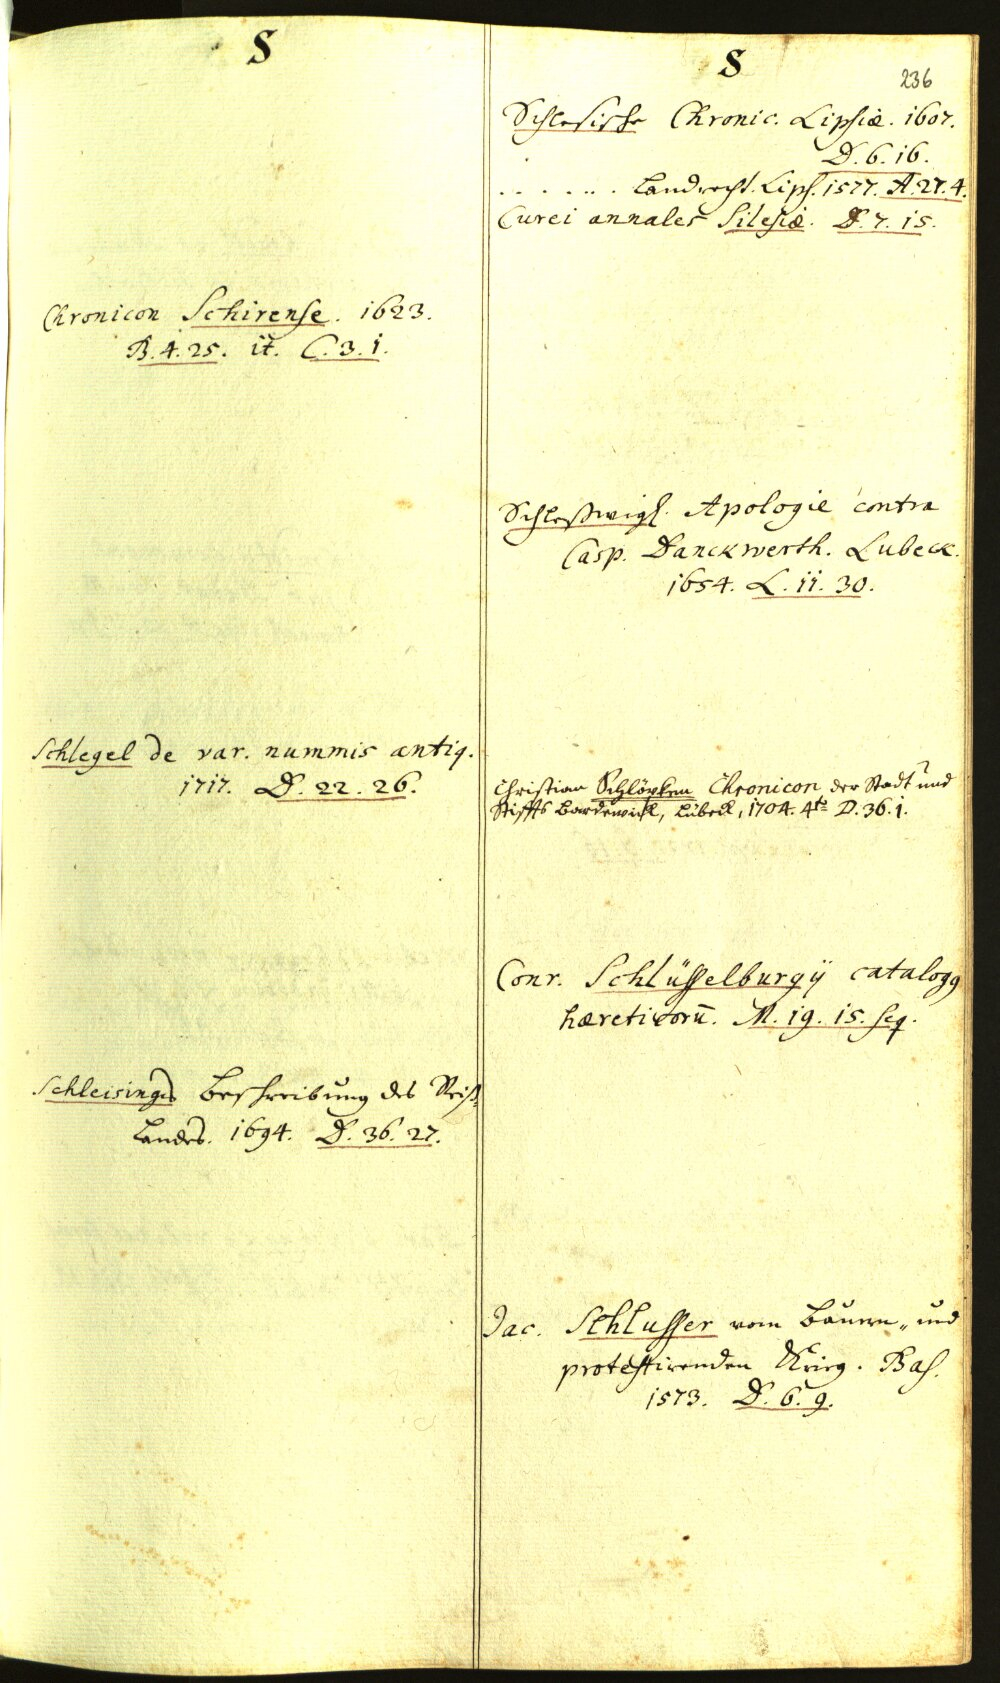 S
Chronicon Schirense. 1623.
B. 4. 25. it. C. 3. 1.
Schlegel de var. nummis antiq.
1717. D. 22. 26.
Schleisings Beschreibung des Reiß
Landes. 1694. D. 36. 27.
S
236
Schlesische Chronic. Lipsiæ. 1607.
D. 6. 16.
. . . . . . Landrecht. Lips. 1577. A. 27. 4.
Curei annales Silesiæ. D. 7. 15.
Schleßwigs. Apologie contra
Casp. Danckwerth. Lubeck.
1654. L. 11. 30.
Christian Schlöpken Chronicon der Stadt und
Stiffts Bardewick, Lübeck, 1704. 4to D. 36. 1.
Conr. Schlüsselburgij catalogq
hæreticorū. M. 19. 15. seq.
Jac. Schlusser vom Bauren- und
protestirenden Krieg. Bas.
1573. D. 6. 9.